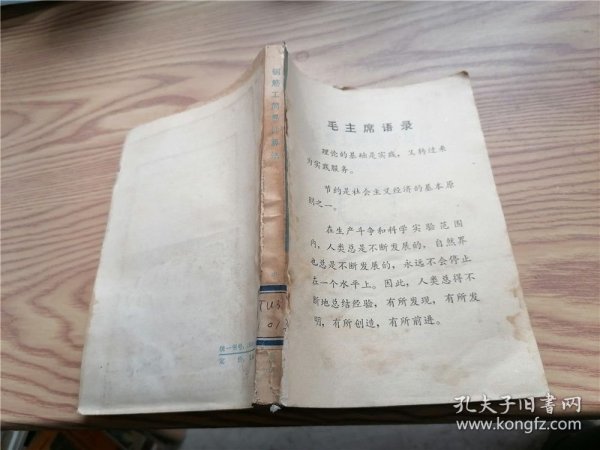 毛主席语录
理论的基础是实践，又转过来
为实践服务。
节约是社会主义经济的基本原
则之一。
在生产斗争和科学实验范围
内，人类总是不断发展的，自然界
也总是不断发展的，永远不会停止
在一个水平上。因此，人类总得不
断地总结经验，有所发现，有所发
明，有所创造，有所前进。
钢筋工简易计算法
TU
统一书号：
定价：
孔夫子旧书网
www.kongfz.com